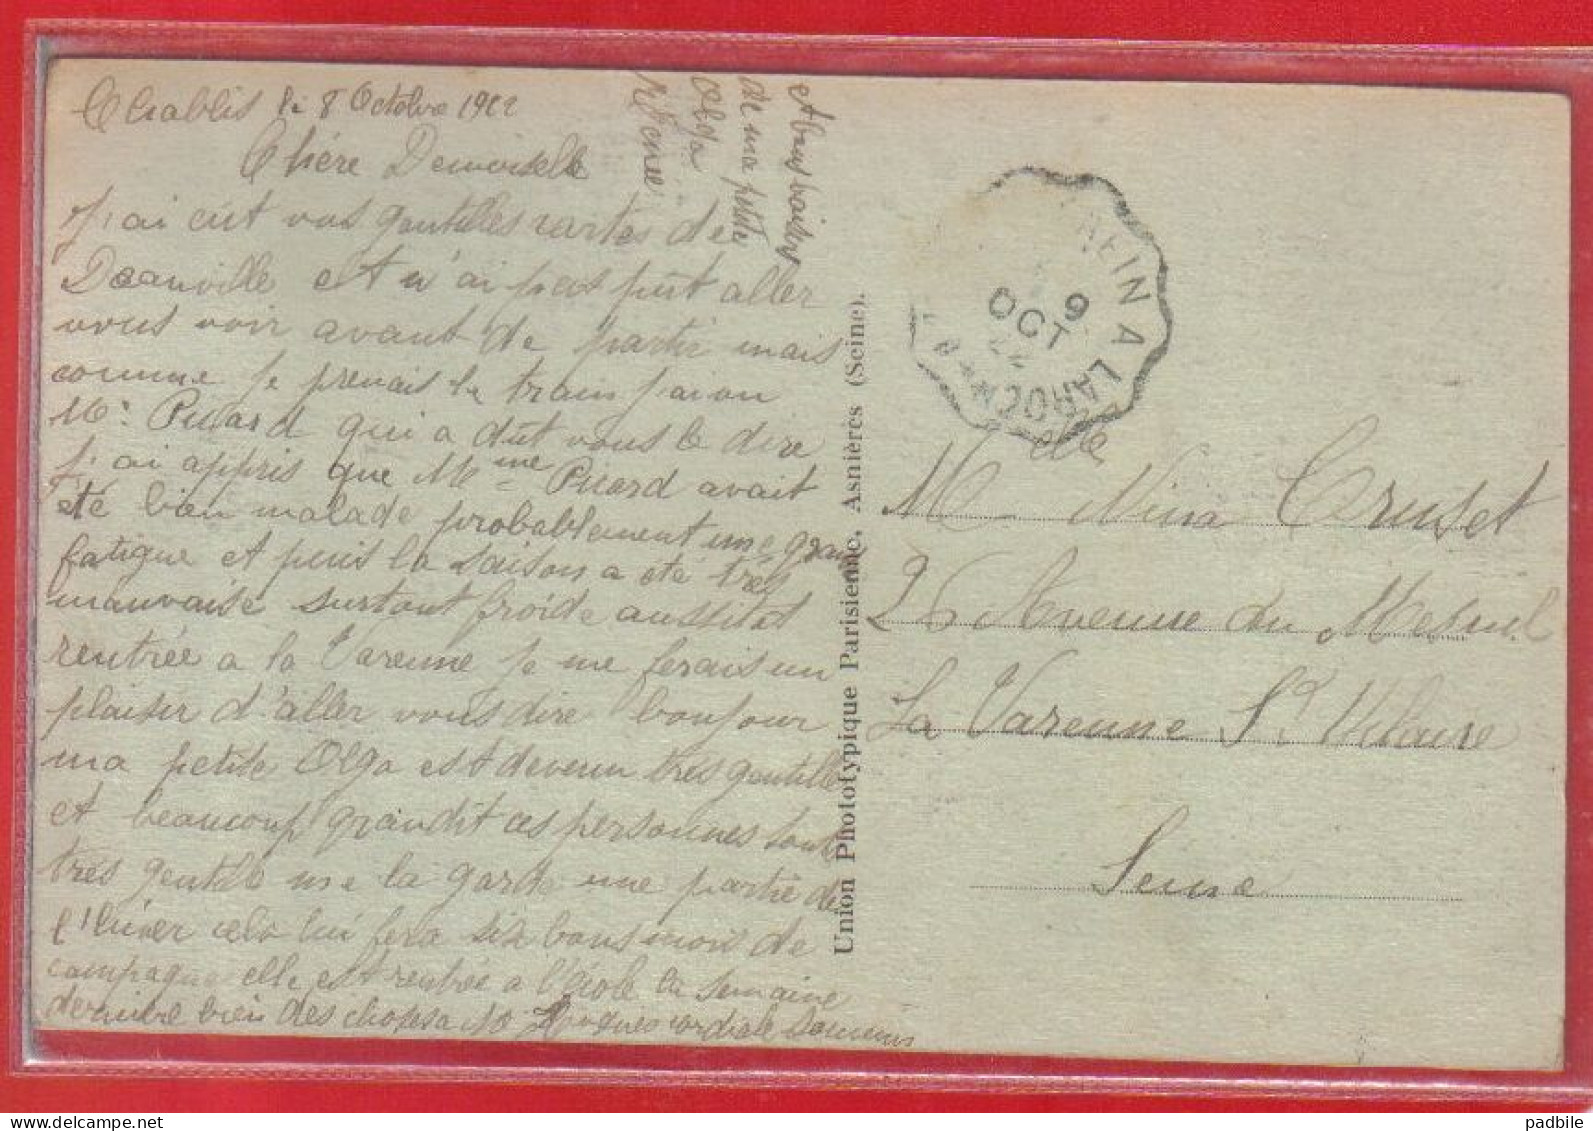 Chablis le 8 Octobre 1922
Chère Demoiselle
J'ai eut vos gentilles cartes de
Deauville et n'ai pas put aller
vous voir avant de partir mais
comme je prenais le train j'ai vu
Mr Picard qui a dût vous le dire
j'ai appris que Mme Picard avait
été bien malade probablement une grande
fatigue et puis la saison a été très
mauvaise surtout froide aussitot
rentrée a la Varenne je me ferais un
plaisir d'aller vous dire bonjour
ma petite Olga est devenu très gentille
et beaucoup grandit ces personnes sont
très gentille me la garde une partie de
l'hiver cela lui fera six bons mois de
campagne elle est rentrée a l'école la semaine
dernière bien des choses a cordiale Souvenirs
et bons baisers
de ma petite
Olga
Renée
Union Phototypique Parisienne, Asnières (Seine).
REIN A LAROCH
9
OCT
22
Melle Nina Cruset
26 Avenue du Mesnil
La Varenne St Hilaire
Seine
padbile